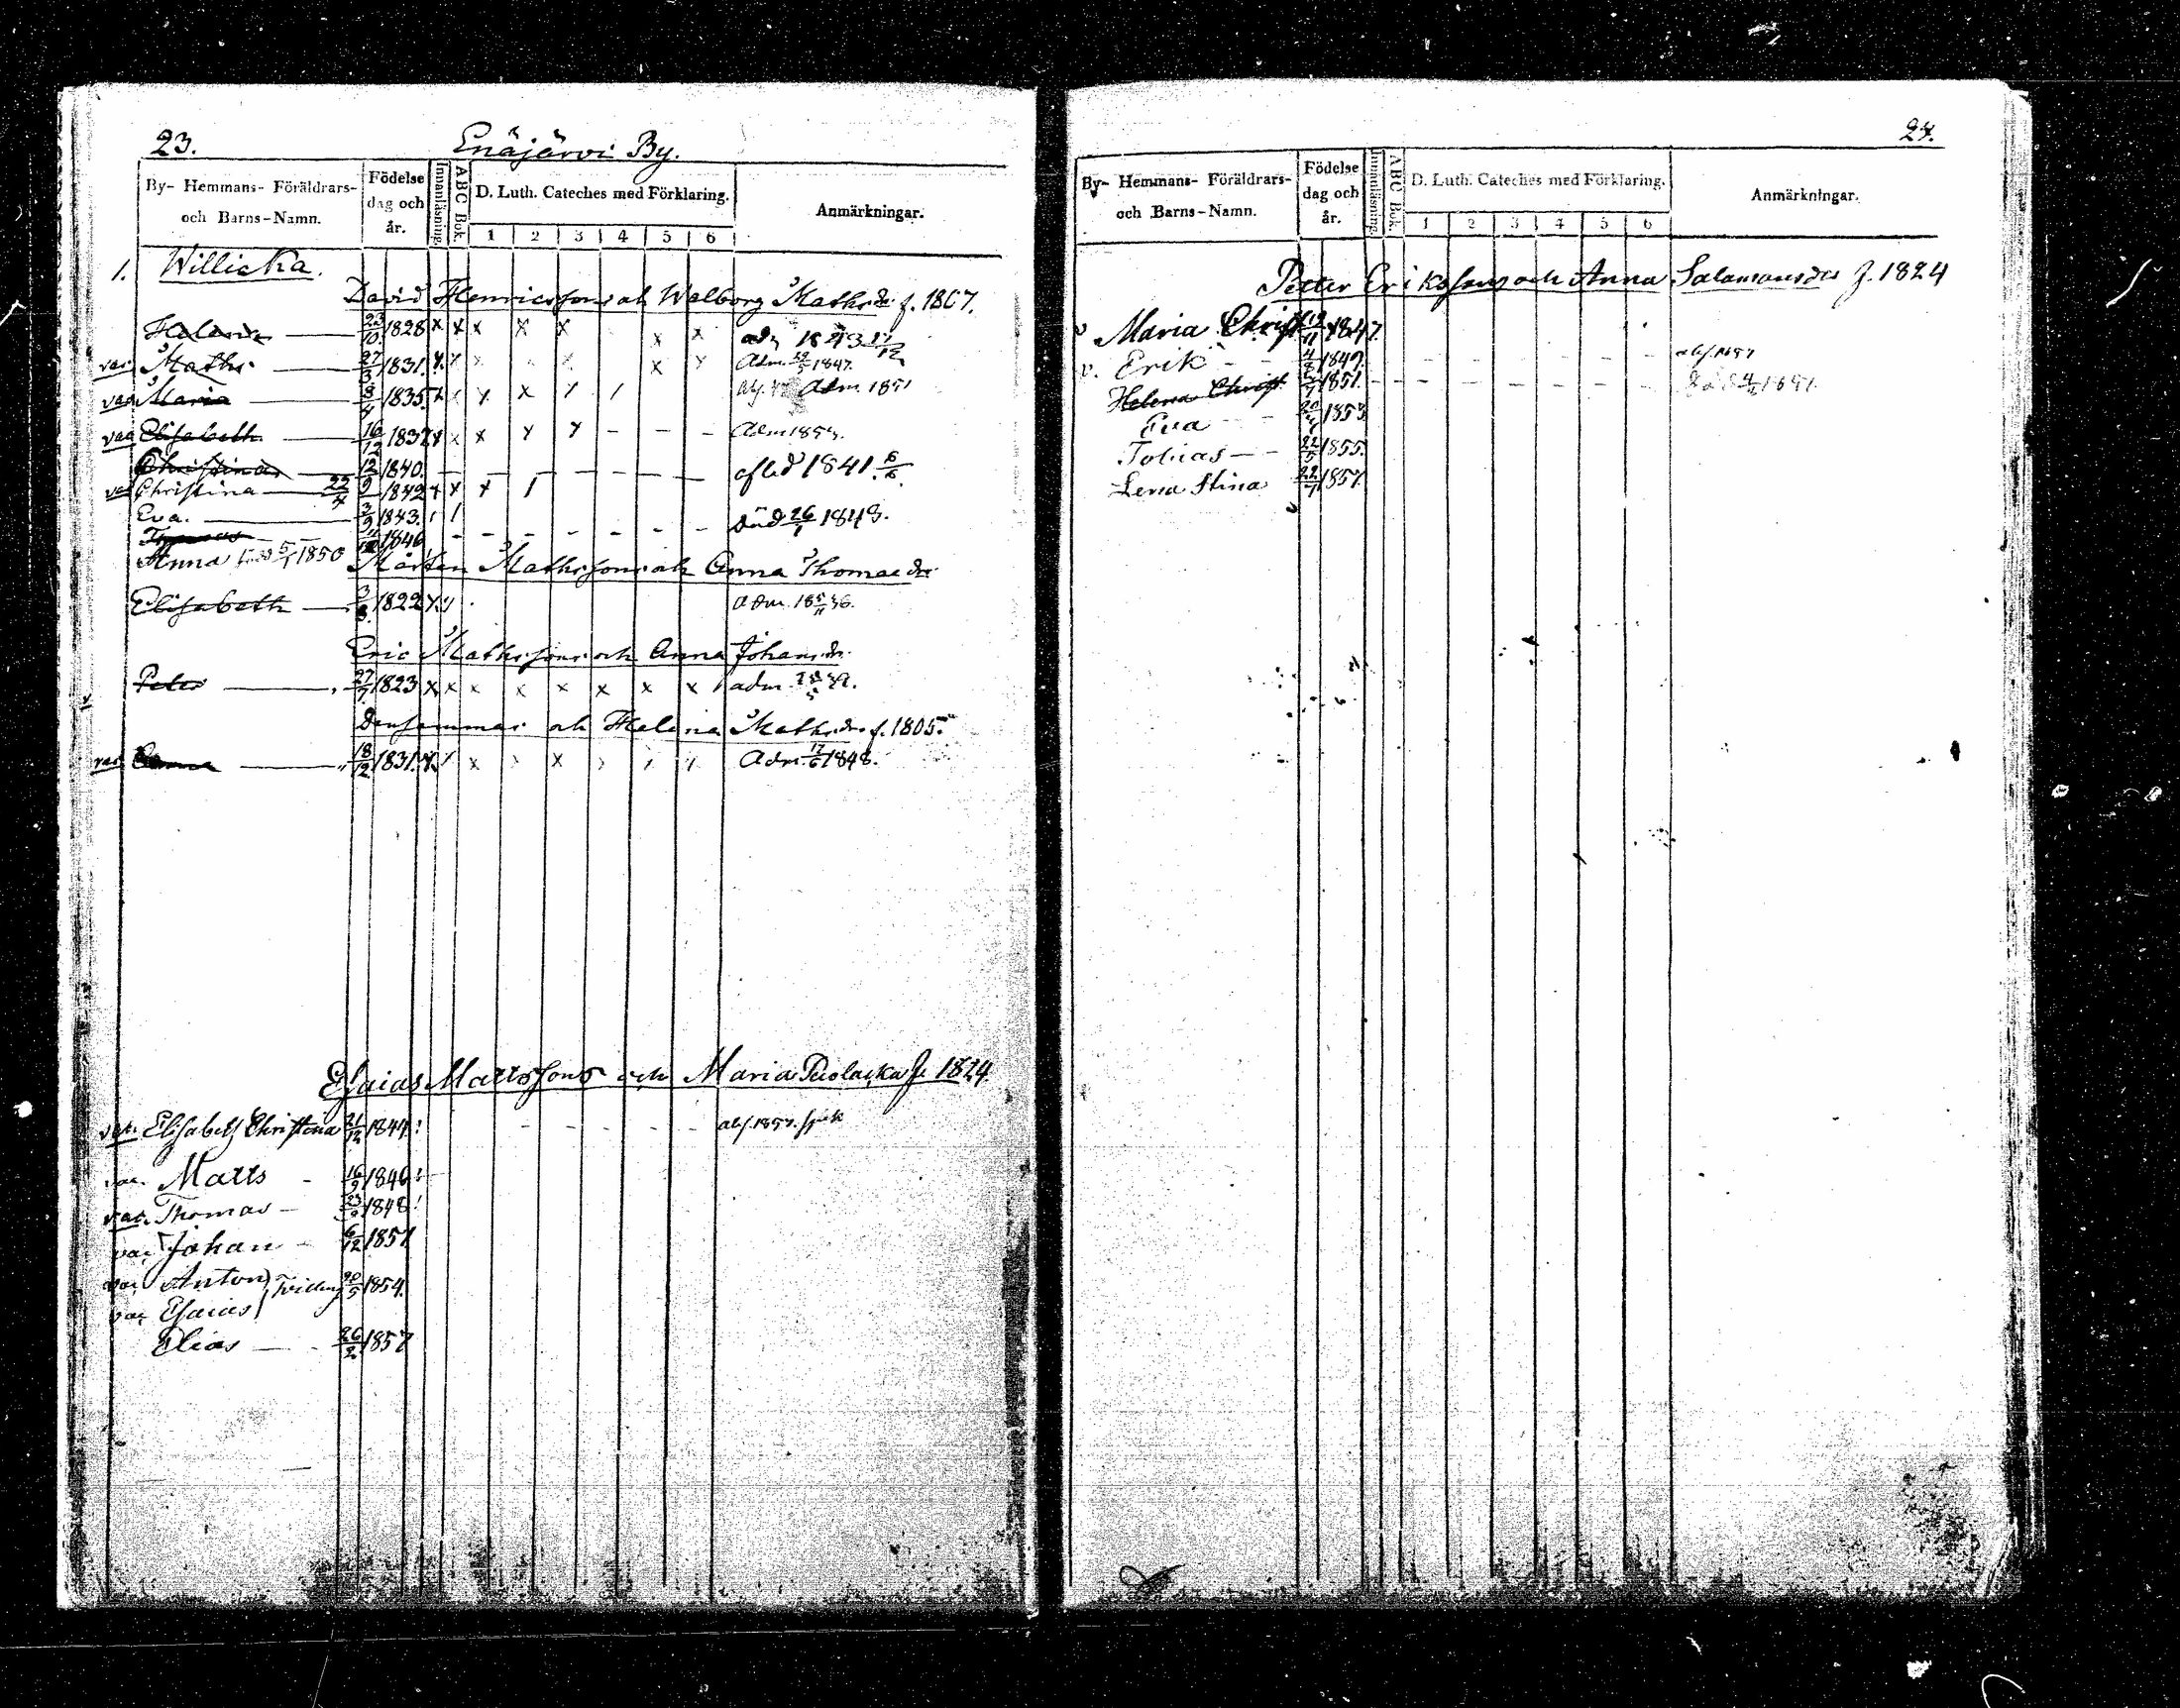 23.
Enäjärvi By.
By- Hemmans- Föräldrars- och Barns-Namn.
Födelse dag och år.
Innanläsning.
ABC Bok.
D. Luth. Cateches med Förklaring.
1 2 3 4 5 6
Anmärkningar.
1. Willicka.
David Henricssons och Walborg Mathsdr f. 1807.
Helena 23/10 1828 x x x x x x x 1843
var. Maths 27/3 1831. Adm. 1847.
var Maria 8/4 1835. Adm. 1851
var Elisabeth 16/12 1837 x x x x x - - - Adm 1853.
Christina 12 1840. - - - - - - - afled 1841 6/6.
var Christina 22/4 1842
Eva. 3/9 1843.
Thomas 1846 - - - - - - - Död 26/1 1848.
Anna 5/1 1850
Mårten Mathssons och Anna Thomaedr
Elisabeth 3/8. 1822 Adm.
Eric Mathssons och Anna Johansdr.
Peter 27/7. 1823 x x x x x x x x adm.
Densammes och Helena Mathsdr f. 1805.
var Anna 18/12 1831. Adm. 17/6 1848.
Esaias Mattssons och Maria f. 1824.
var. Elisabeth Christina 21/12 1844. - - - - - abs. 1857.
var. Matts - 16/9 1846
var. Thomas - 23 1848
var Johan - 6/12 1851
var Anton Tvilling 20/5 1854.
var Esaias
Elias - 26/2 1857
24.
By- Hemmans- Föräldrars- och Barns-Namn.
Födelse dag och år.
Innanläsning.
ABC Bok.
D. Luth. Cateches med Förklaring.
1 2 3 4 5 6
Anmärkningar.
Petter Erikssons och Anna Salamonsdr f. 1824
v Maria Christ 1847.
v. Erik - 4/8 1849.
Helena Christ. 1851.
Eva 1853
Tobias - 22/5 1855.
Lena Stina 22/7 1857.